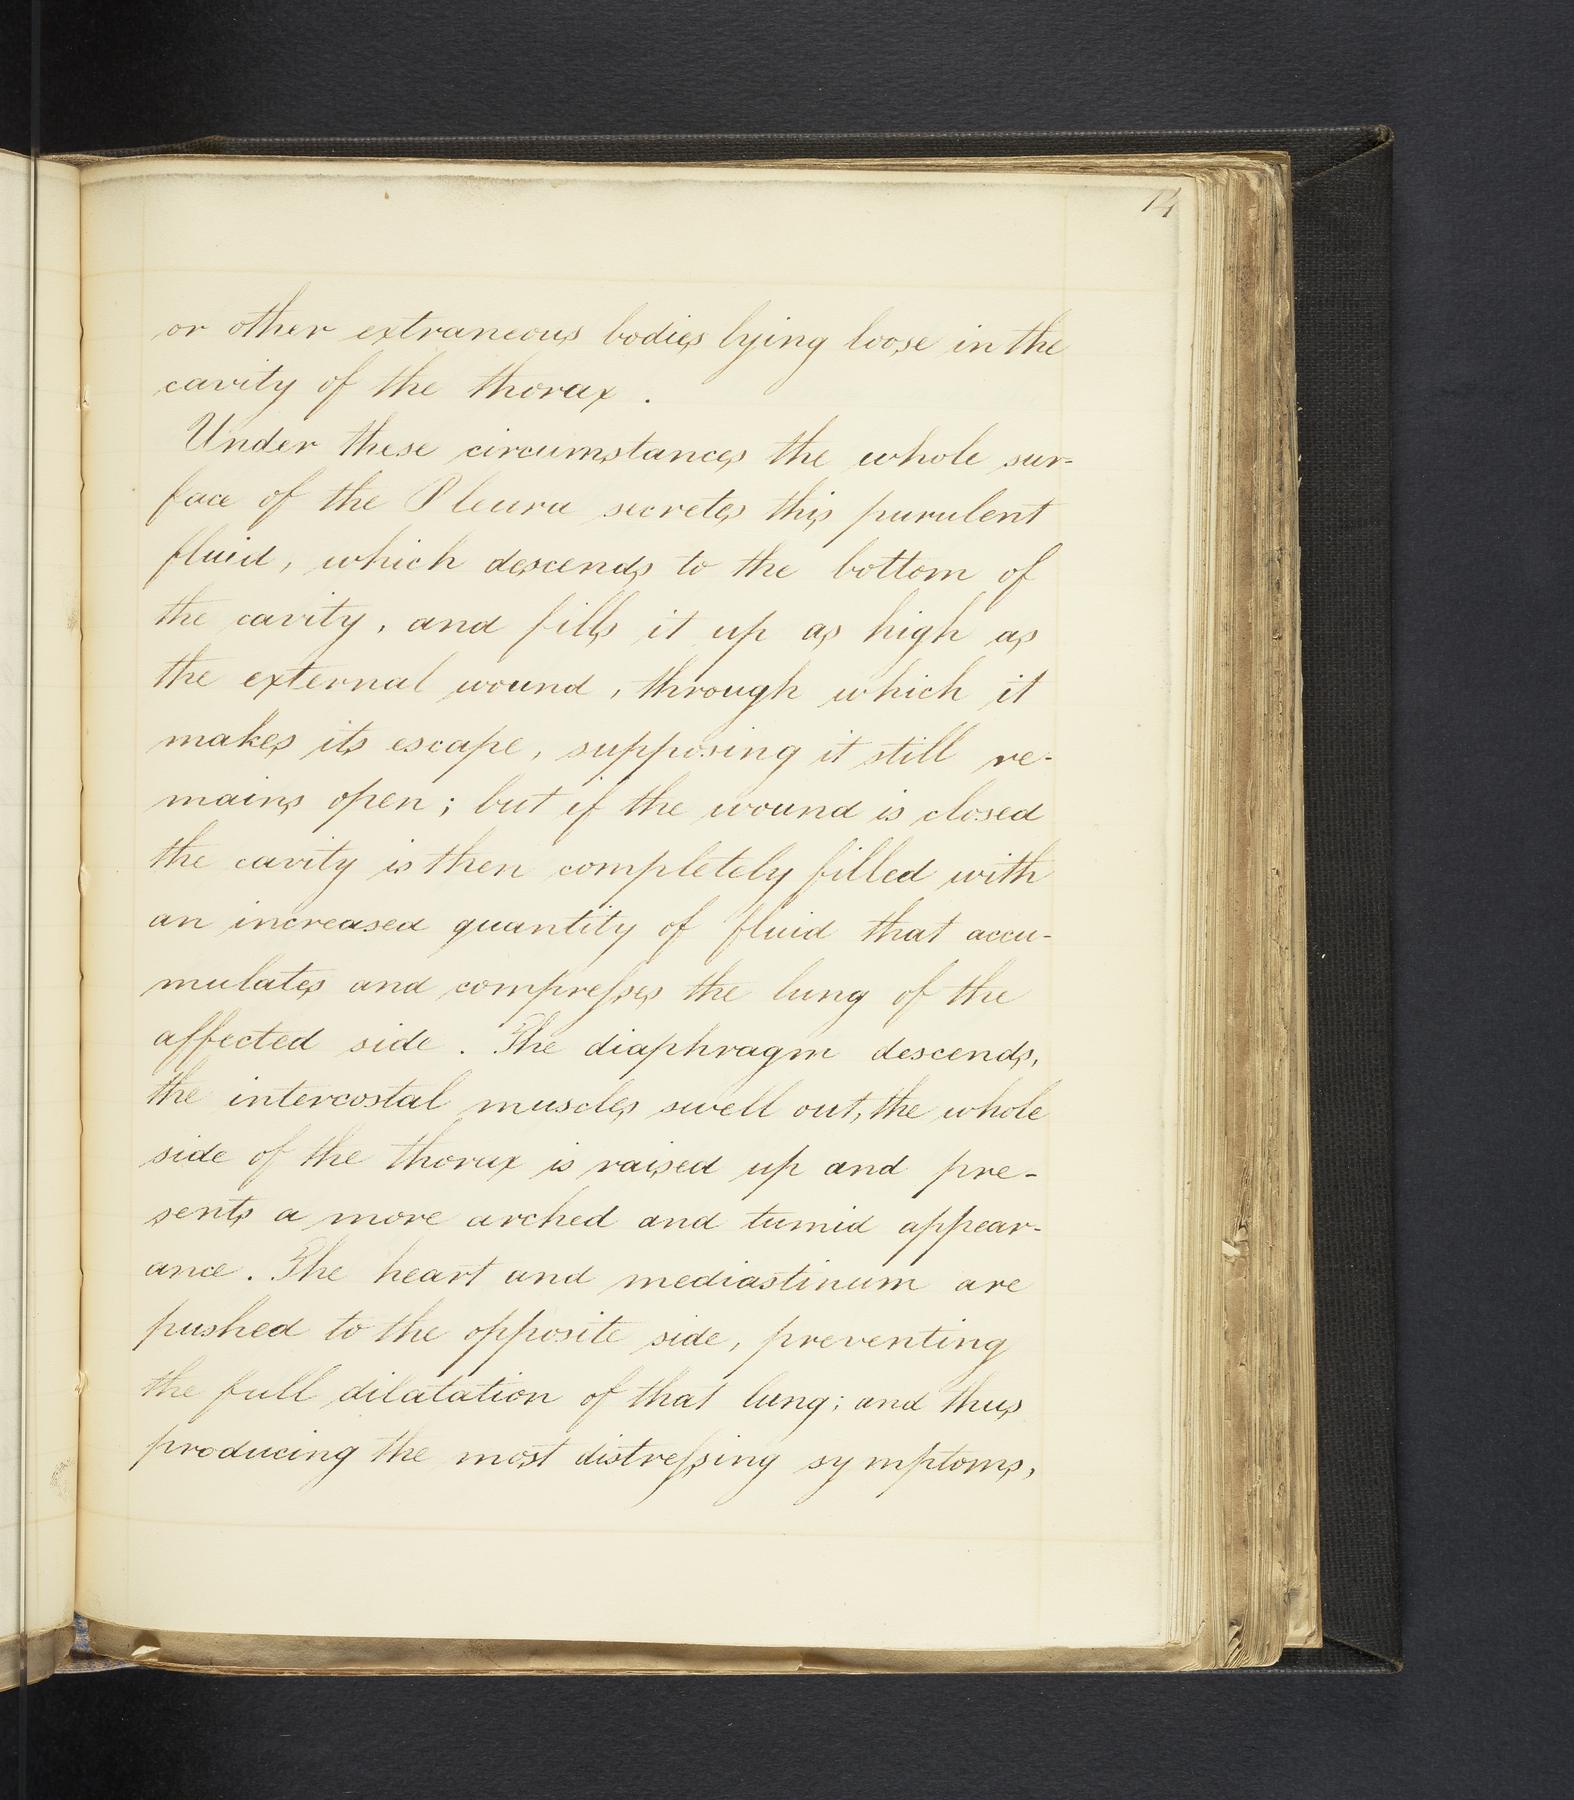 14
or other extraneous bodies lying loose in the
cavity of the thorax .
Under these circumstances the whole sur-
face of the Pleura secretes this purulent
fluid, which descends to the bottom of
the cavity, and fills it up as high as
the external wound, through which it
makes its escape, supposing it still re-
mains open; but if the wound is closed
the cavity is then completely filled with
an increased quantity of fluid that accu-
mulates and compreſses the lung of the
affected side. The diaphragm descends,
the intercostal muscles swell out, the whole
side of the thorax is raised up and pre-
sents a more arched and tumid appear-
ance. The heart and mediastinum are
pushed to the opposite side, preventing
the full dilatation of that lung; and thus
producing the most distreſsing symptoms,